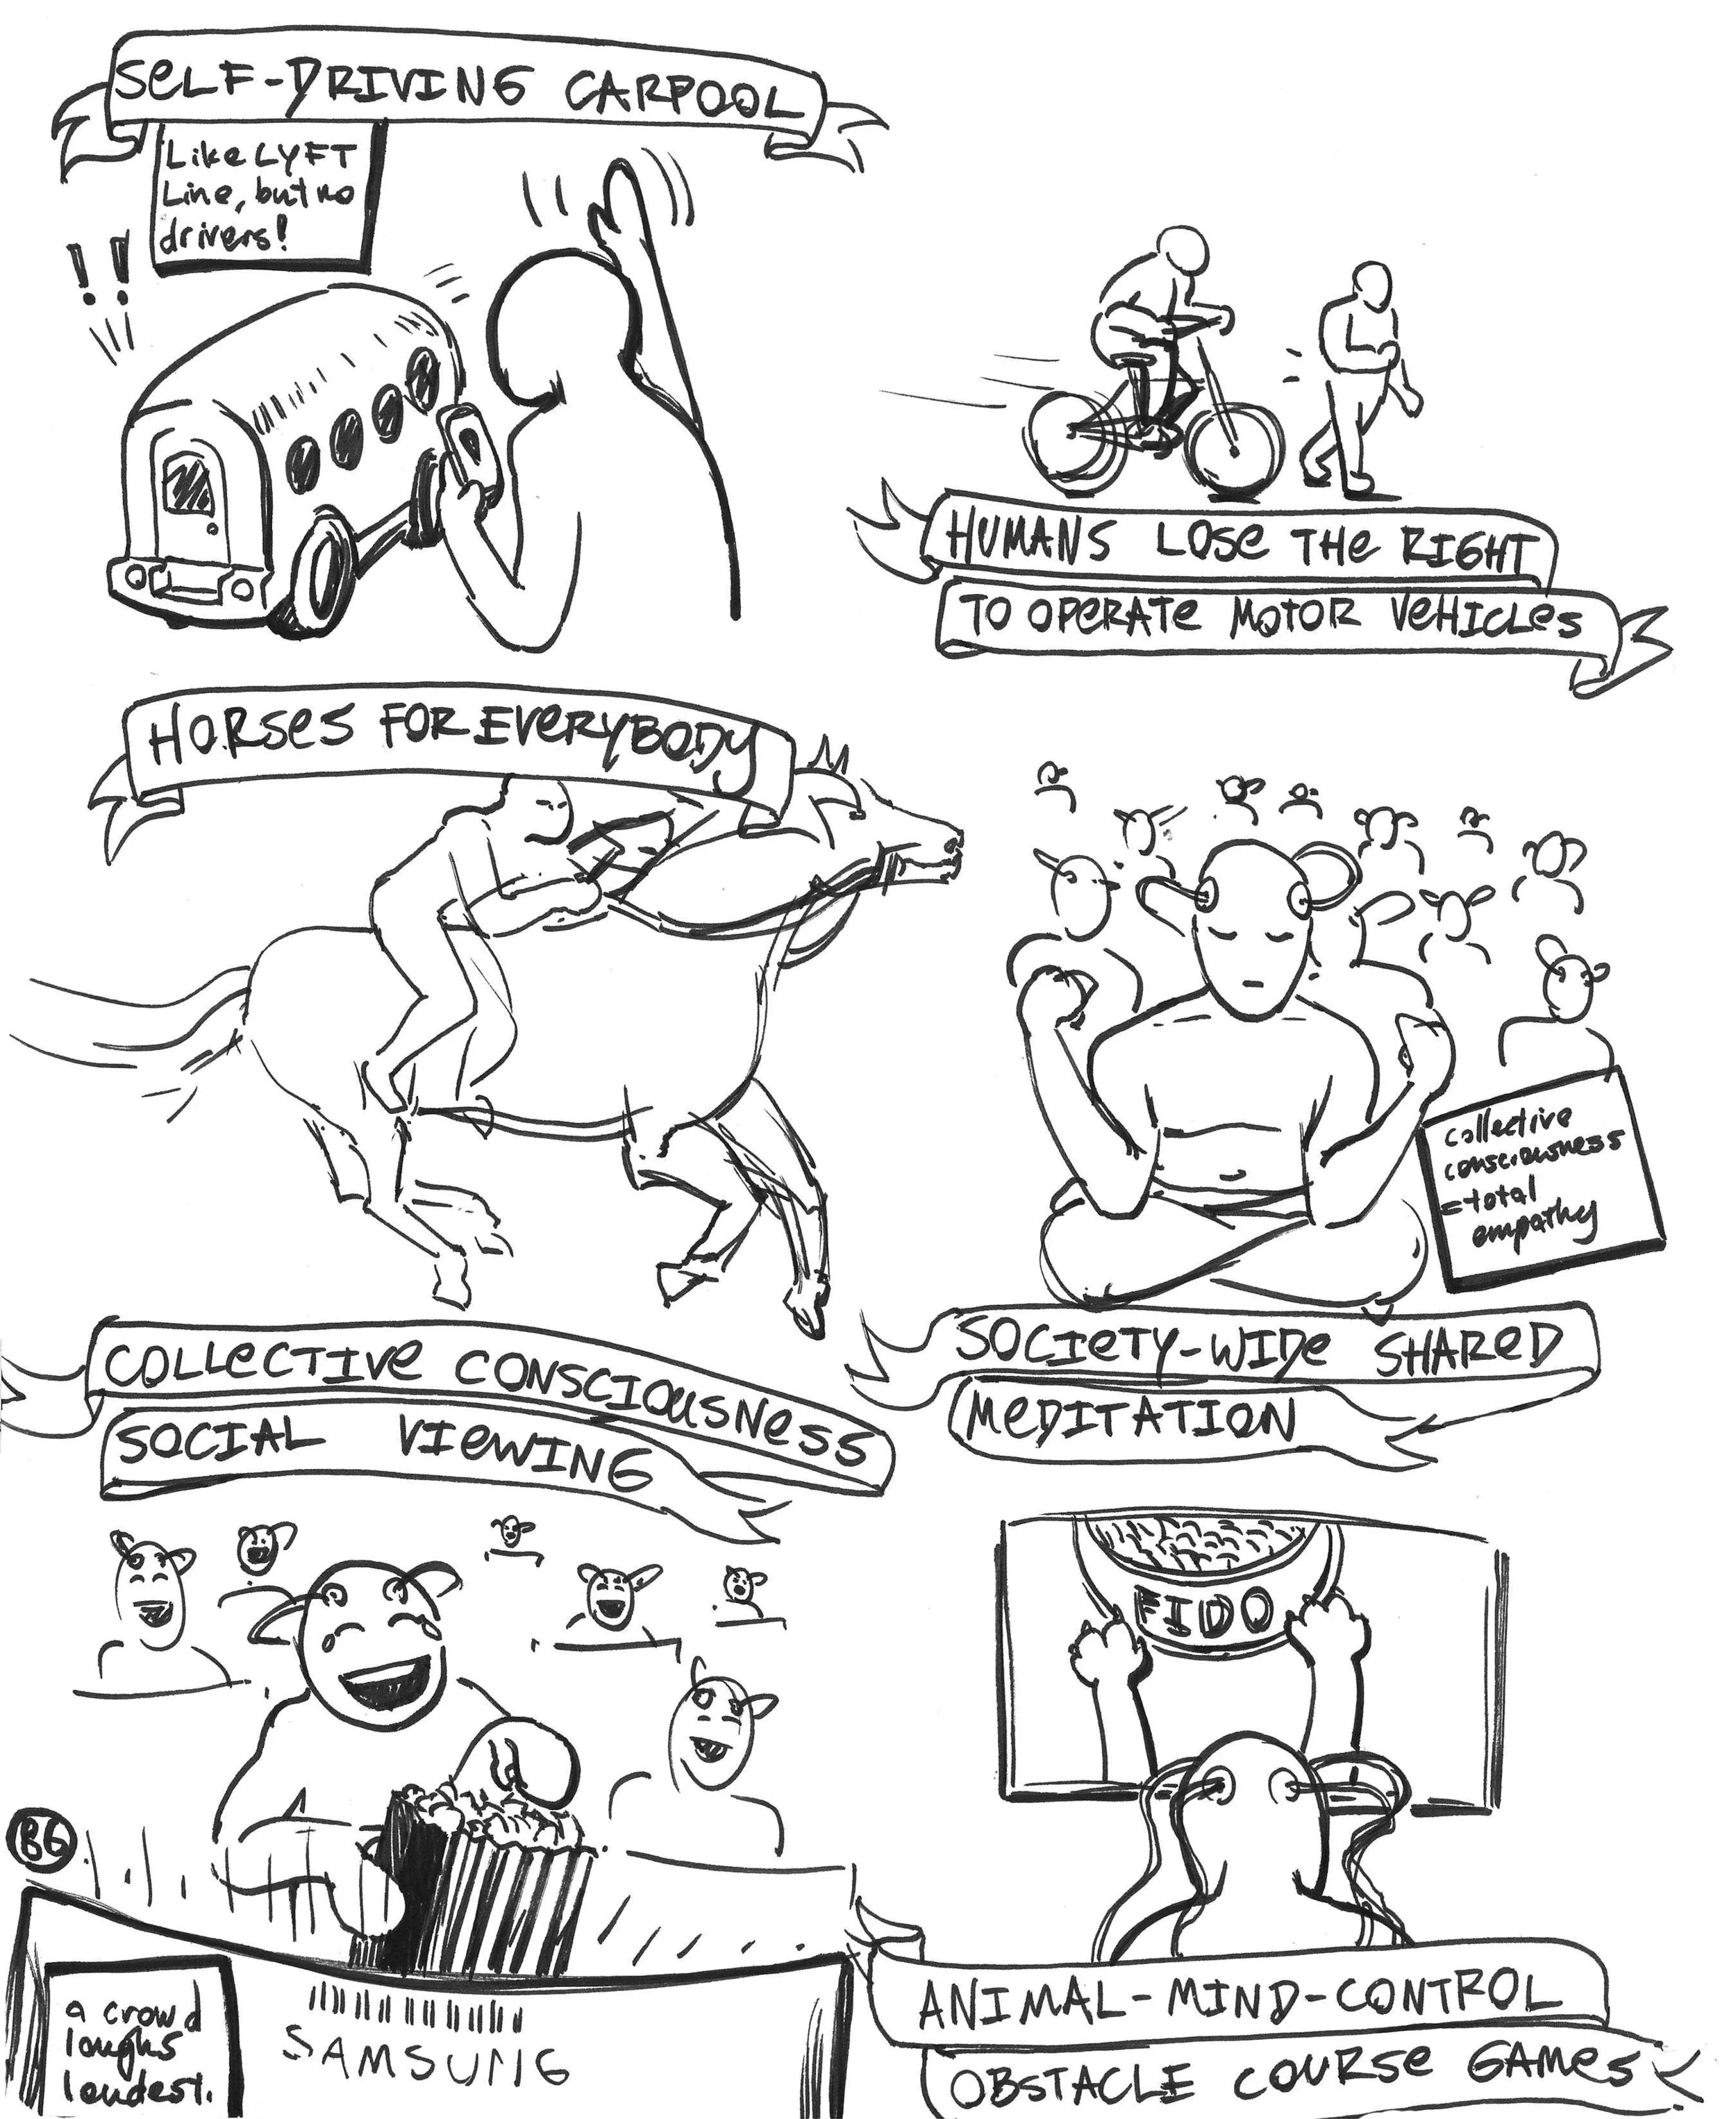 SELF-DRIVING CARPOOL
Like LYFT
Line, but no
drivers!
!!
HUMANS LOSE THE RIGHT
TO OPERATE MOTOR VEHICLES
HORSES FOR EVERYBODY
collective
consciousness
=total
empathy
SOCIETY-WIDE SHARED
MEDITATION
COLLECTIVE CONSCIOUSNESS
SOCIAL VIEWING
FIDO
BG
a crowd
laughs
loudest.
SAMSUNG
ANIMAL-MIND-CONTROL
OBSTACLE COURSE GAMES